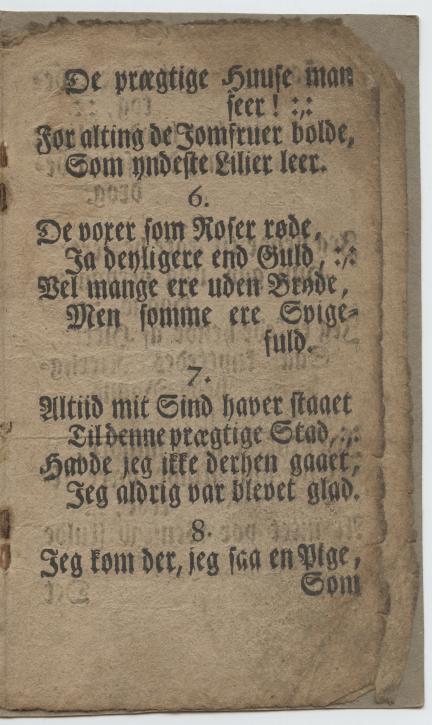 De prægtige Huuse man
seer! :,:
For alting de Jomfruer bolde,
Som yndeste Lilier leer.
6.
De voxer som Roser røde,
Ja deyligere end Guld, :,:
Vel mange ere uden Brøde,
Men somme ere Svige-
fuld.
7.
Altiid mit Sind haver staaet
Til denne prægtige Stad, :,:
Havde jeg ikke derhen gaaet,
Jeg aldrig var blevet glad.
8.
Jeg kom der, jeg saa en Pige,
Som